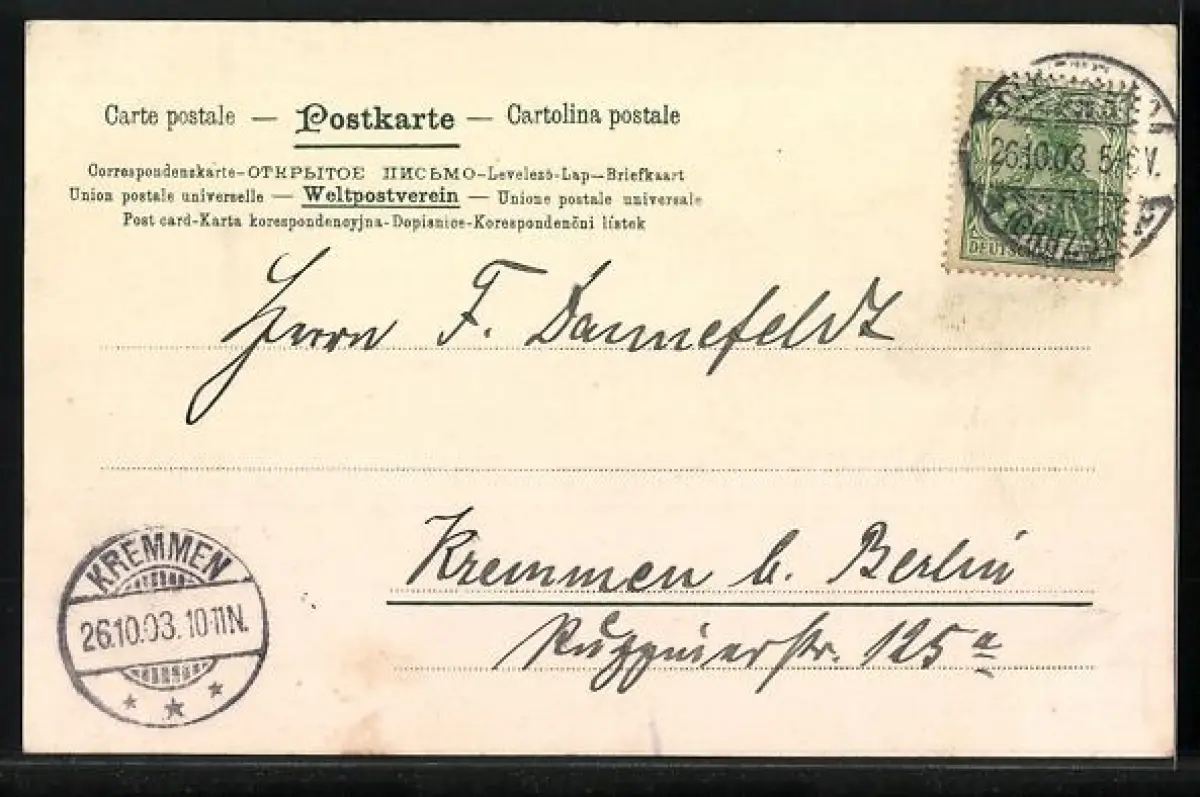 Carte postale — Postkarte — Cartolina postale
Correspondenskarte-ОТКРЫТОЕ ПИСЬМО-Levelező-Lap-Briefkaart
Union postale universelle — Weltpostverein — Unione postale universale
Post card-Karta korespondencyjna-Dopisnice-Korespondenční lístek
26.10.03. 5-6V.
DEUTSCHES
Herrn F. Dannefeldt
Kremmen b. Berlin
Ruppinerstr. 125a
KREMMEN
26.10.03. 10-11N.